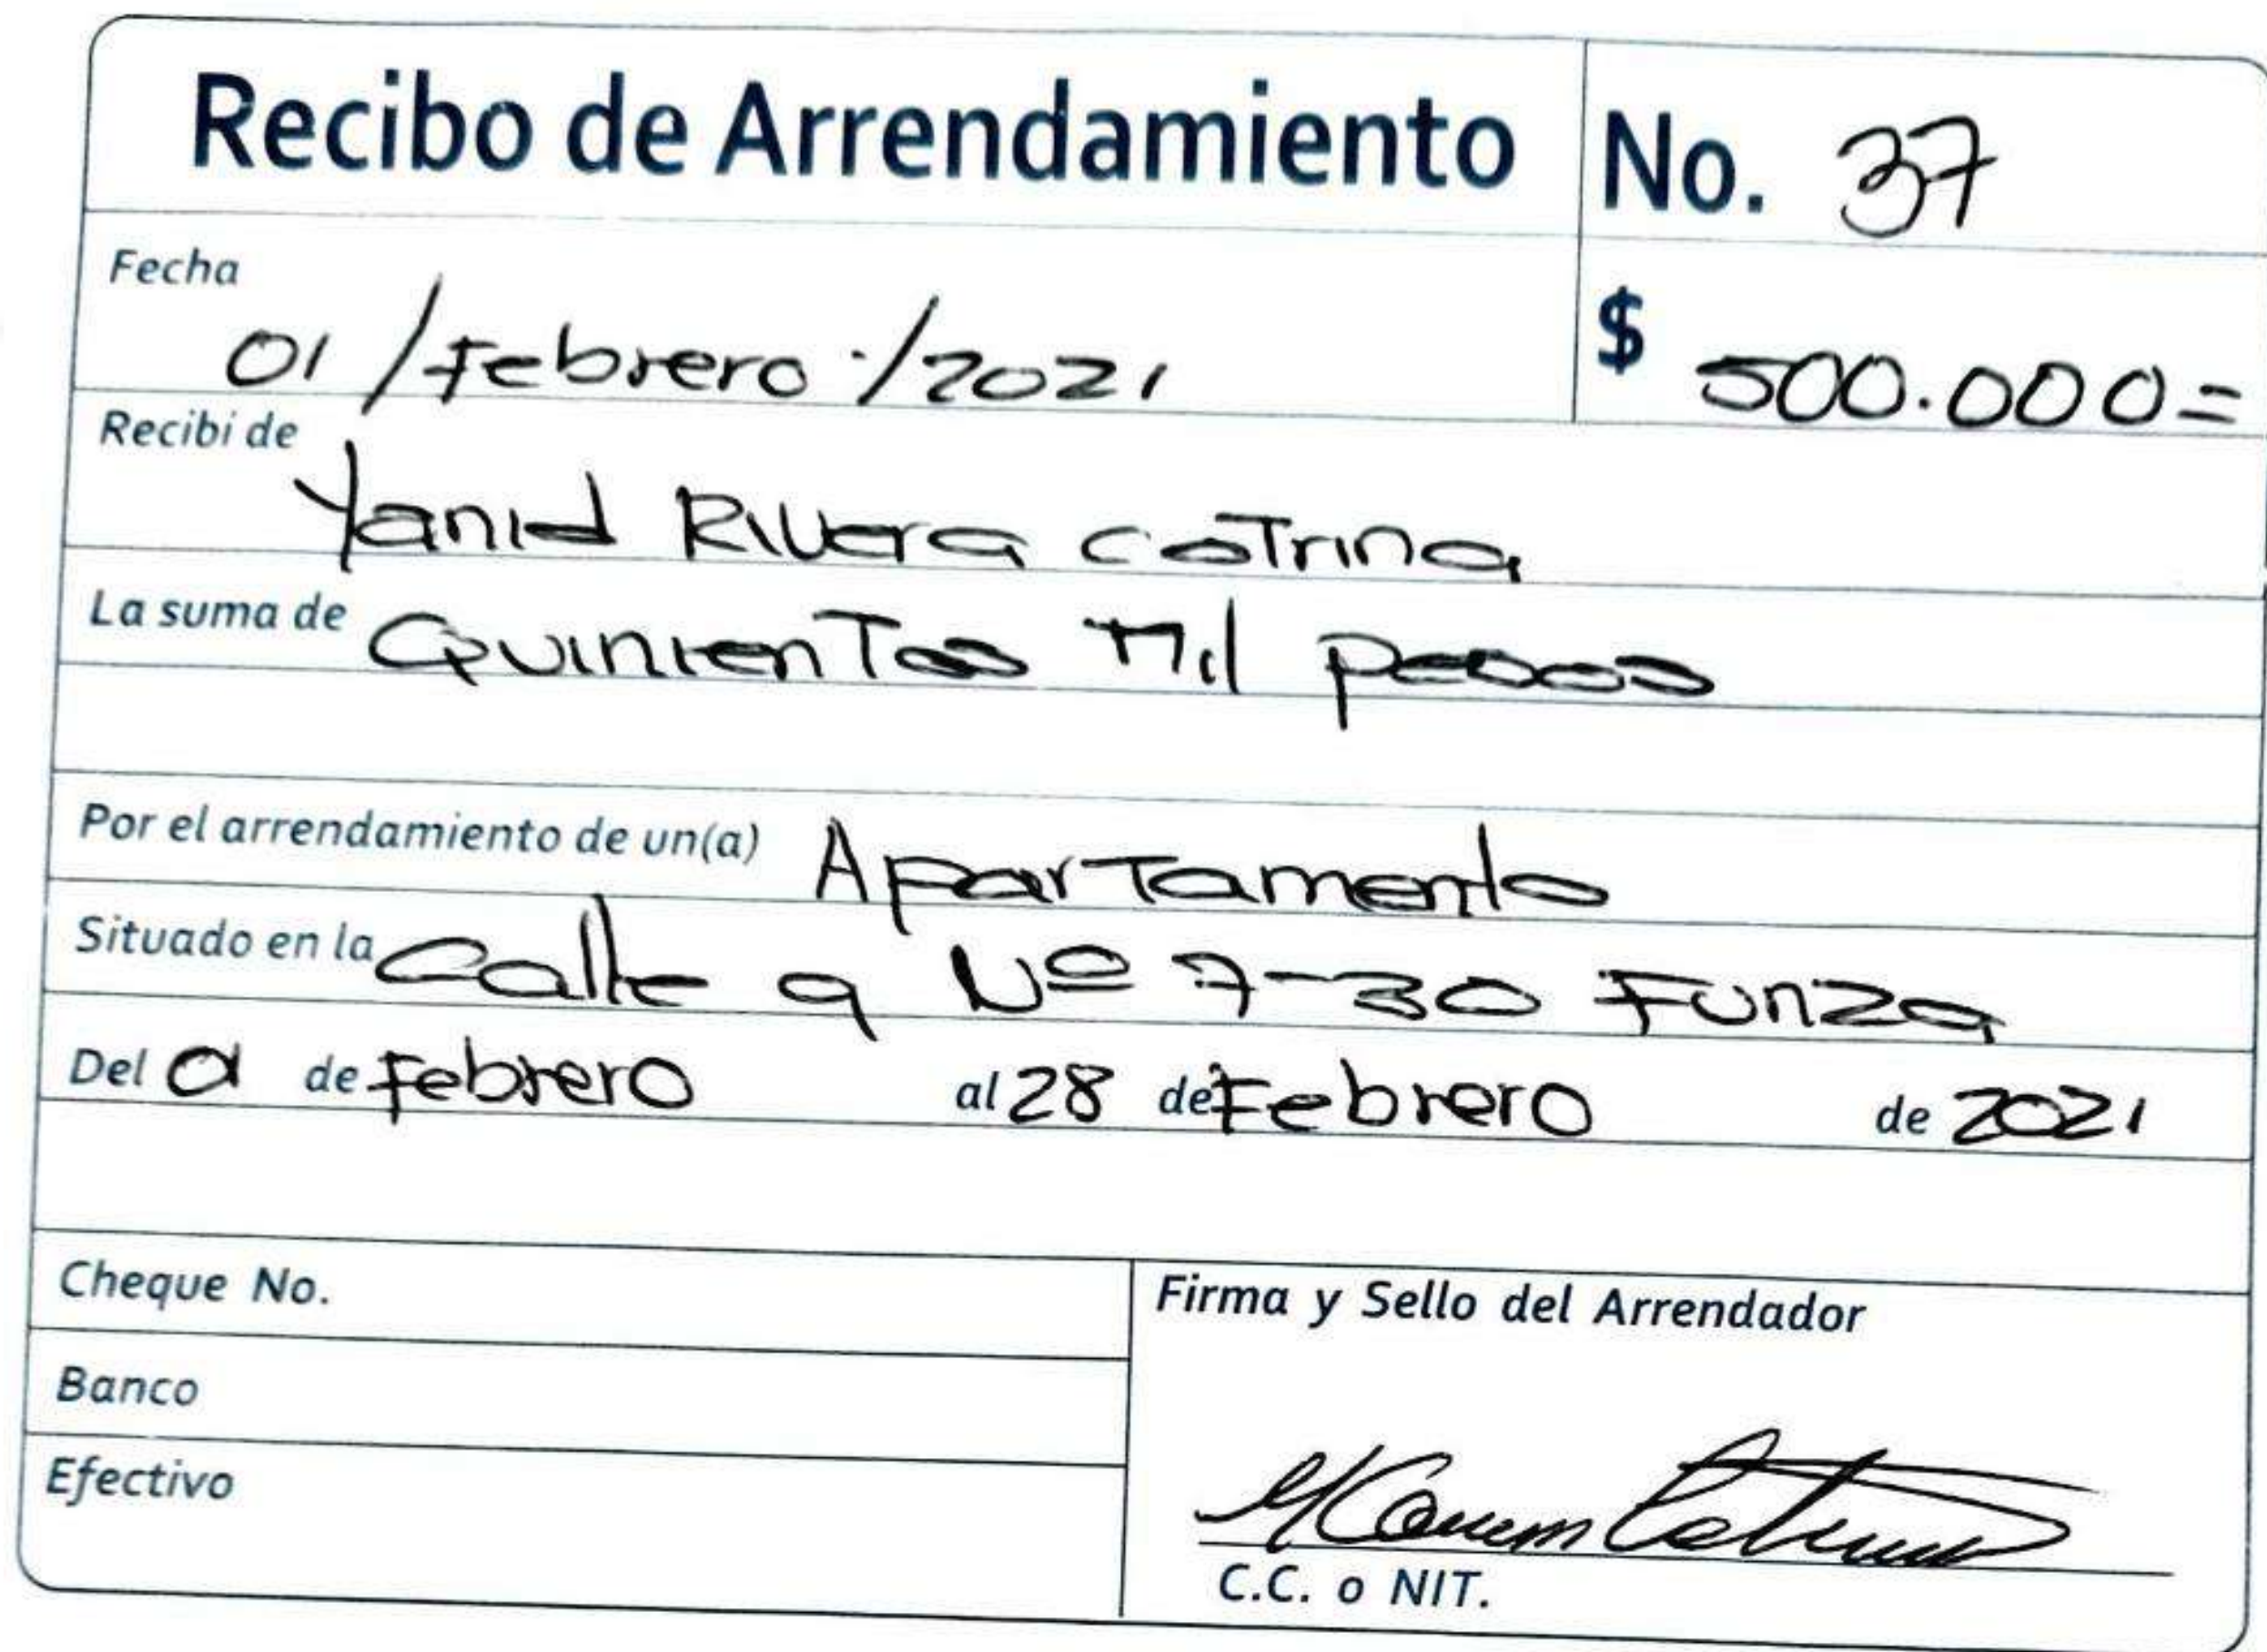 Recibo de Arrendamiento No. 37
Fecha 01/Febrero/2021 $ 500.000=
Recibí de Yanid Rivera Cotrina
La suma de Quinientos Mil pesos
Por el arrendamiento de un(a) Apartamento
Situado en la Calle 9 Nº 7-30 Funza
Del 01 de Febrero al 28 de Febrero de 2021
Cheque No.
Firma y Sello del Arrendador
Banco
Efectivo
C.C. o NIT.